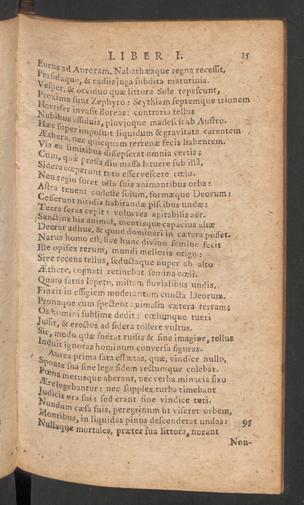 LIBER I. 15
Eurus ad Auroram, Nabathæaque regna recessit,
Persidaque, & radiis juga subdita matutinis.
Vesper, & occiduo quæ littora Sole tepescunt,
Proxima sunt Zephyro: Scythiam septemque trionem
Horrifer invasit Boreas: contraria tellus
Nubibus assiduis, pluvioque madescit ab Austro.
Hæc super imposuit liquidum & gravitate carentem
Æthera, nec quicquam terrenæ fecis habentem.
Vix ea limitibus dissepserat omnia certis;
Cum, quæ pressa diu massa latuere sub illa,
Sidera cœperunt toto effervescere cœlo.
Neu regio foret ulla suis animantibus orba:
Astra tenent cœleste solum, formæque Deorum:
Cesserunt nitidis habitandæ piscibus undæ:
Terra feras cepit: volucres agitabilis aër.
Sanctius his animal, mentisque capacius altæ
Deerat adhuc, & quod dominari in cætera posset.
Natus homo est, sive hunc divino semine fecit
Ille opifex rerum, mundi melioris origo:
Sive recens tellus, seductaque nuper ab alto
Æthere, cognati retinebat semina cœli.
Quam satus Iapeto, mistam fluvialibus undis,
Finxit in effigiem moderantum cuncta Deorum.
Pronaque cum spectent animalia cætera terram;
Os homini sublime dedit: cœlumque tueri
Jussit, & erectos ad sidera tollere vultus.
Sic, modo quæ fuerat rudis & sine imagine, tellus
Induit ignotas hominum conversa figuras.
Aurea prima sata est ætas, quæ, vindice nullo,
Sponte sua sine lege fidem rectumque colebat.
Pœna metusque aberant, nec verba minacia fixo
Ære legebantur: nec supplex turba timebant
Judicis ora sui: sed erant sine vindice tuti.
Nondum cæsa suis, peregrinum ut viseret orbem,
Montibus, in liquidas pinus descenderat undas: 95
Nullaque mortales, præter sua littora, norant
Non-